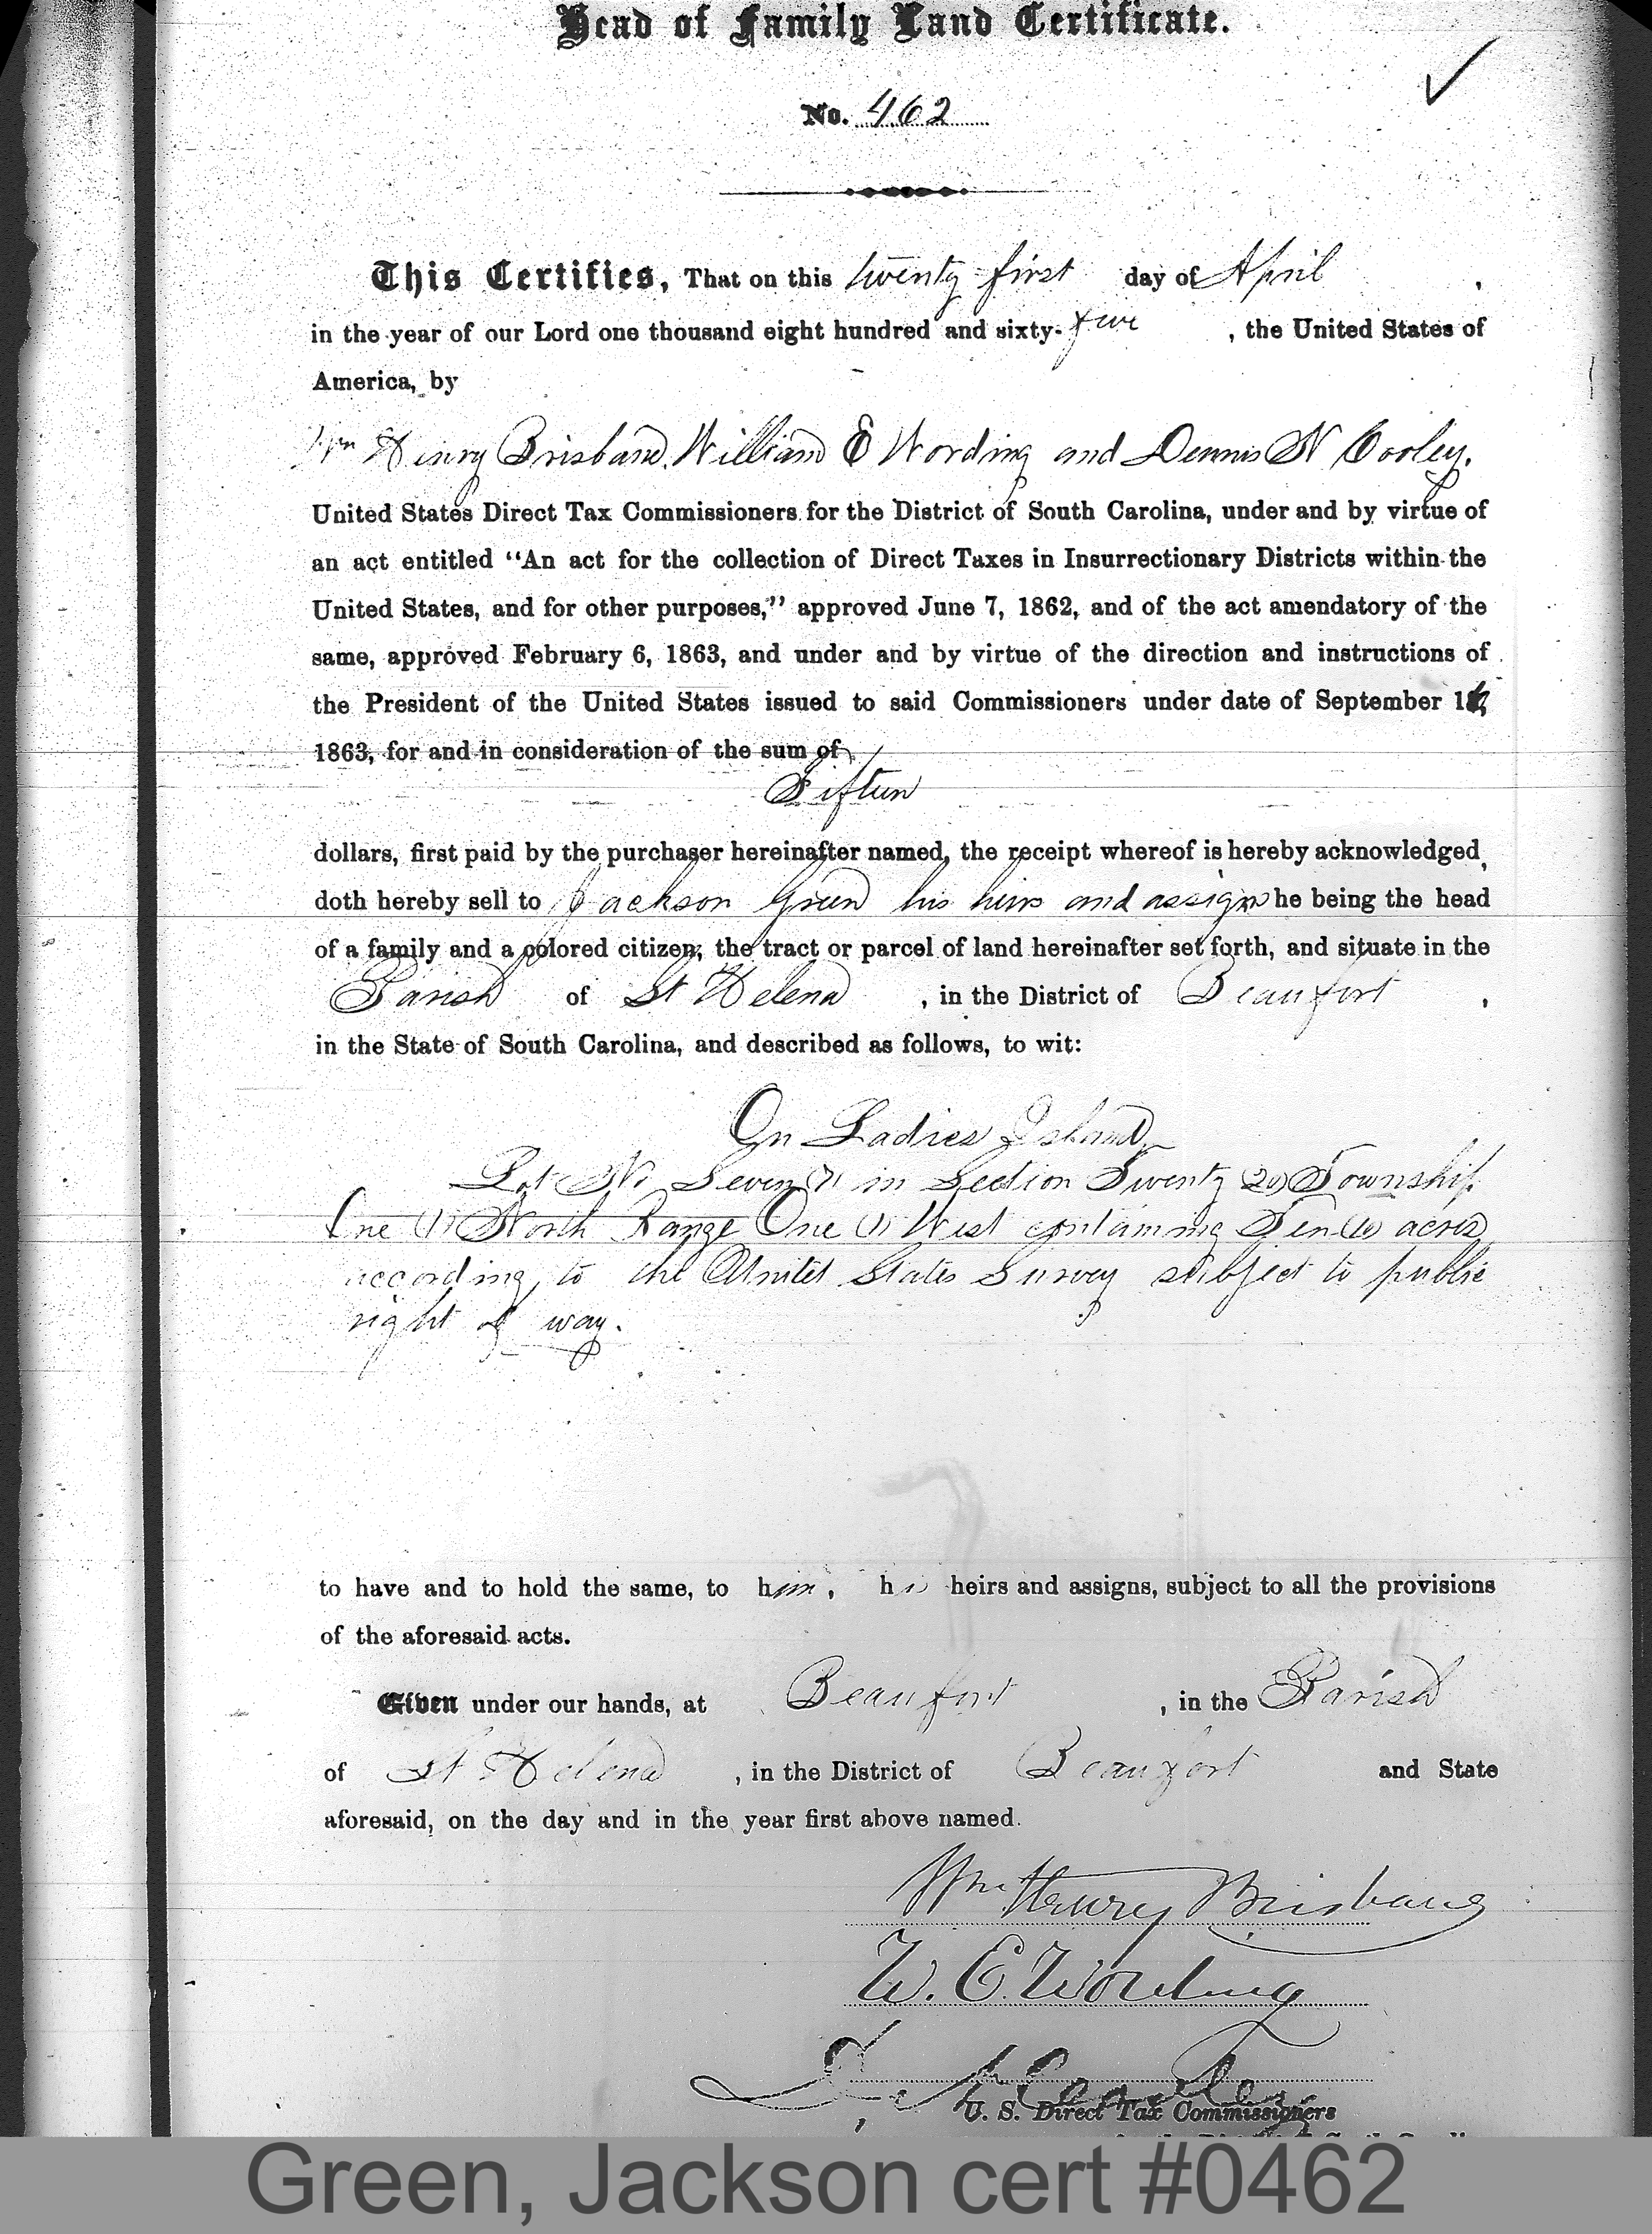 Head of Family Land Certificate.
No. 462
This Certifies, That on this twenty first day of April ,
in the year of our Lord one thousand eight hundred and sixty-five , the United States of
America, by
Wm Henry Brisband, William E Wording and Dennis N Cooley.
United States Direct Tax Commissioners for the District of South Carolina, under and by virtue of
an act entitled “An act for the collection of Direct Taxes in Insurrectionary Districts within the
United States, and for other purposes,” approved June 7, 1862, and of the act amendatory of the
same, approved February 6, 1863, and under and by virtue of the direction and instructions of
the President of the United States issued to said Commissioners under date of September
1863, for and in consideration of the sum of
Fifteen
dollars, first paid by the purchaser hereinafter named, the receipt whereof is hereby acknowledged,
doth hereby sell to Jackson Green his heirs and assigns he being the head
of a family and a colored citizen, the tract or parcel of land hereinafter set forth, and situate in the
Parish of St Helena , in the District of Beaufort ,
in the State of South Carolina, and described as follows, to wit:
On Ladies Island
Lot No Seven (7) in Section Twenty (20) Township
One (1) North Range One (1) West containing Ten (10) acres
according to the United States Survey subject to public
right of way.
to have and to hold the same, to him, his heirs and assigns, subject to all the provisions
of the aforesaid acts.
Given under our hands, at Beaufort , in the Parish
of St Helena , in the District of Beaufort and State
aforesaid, on the day and in the year first above named.
Wm Henry Brisbane
W. E. Wording
D. N. Cooley
U. S. Direct Tax Commissioners
Green, Jackson cert #0462